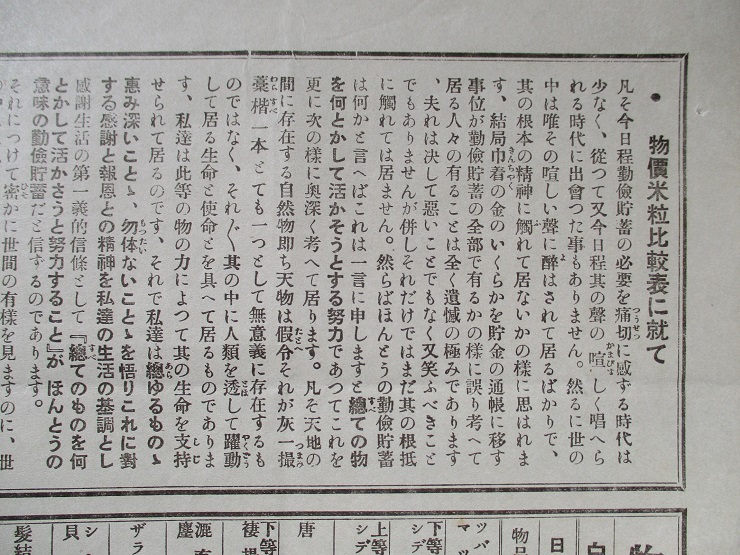 ● 物價米粒比較表に就て
凡そ今日程勤儉貯蓄の必要を痛切に感ずる時代は
少なく、從つて又今日程其の聲の喧しく唱へら
れる時代に出會つた事もありません。然るに世の
中は唯その喧しい聲に醉はされて居るばかりで、
其の根本の精神に觸れて居ないかの樣に思はれま
す、結局巾着の金のいくらかを貯金の通帳に移す
事位が勤儉貯蓄の全部で有るかの樣に誤り考へて
居る人々の有ることは全く遺憾の極みであります
、夫れは決して惡いことでもなく又笑ふべきこと
でもありませんが併しそれだけではまだ其の根抵
に觸れては居ません。然らばほんとうの勤儉貯蓄
は何かと言へばこれは一言に申しますと總ての物
を何とかして活かそうとする努力であつてこれを
更に次の樣に奥深く考へて居ります。凡そ天地の
間に存在する自然物即ち天物は假令それが灰一撮
藁楷一本とても一つとして無意義に存在するも
のではなく、それ〲其の中に人類を透して躍動
して居る生命と使命とを具へて居るものでありま
す、私達は此等の物の力によつて其の生命を支持
せられて居るのです、それで私達は總ゆるものゝ
惠み深いことゝ、勿体ないことゝを悟りこれに對
する感謝と報恩との精神を私達の生活の基調とし
感謝生活の第一義的信條として『總てのものを何
とかして活かさうと努力すること』が ほんとうの
意味の勤儉貯蓄だと信ずるのであります。
それにつけて密かに世間の有樣を見ますのに、世
物品
ツバ
マツ
下等
シデ
上等
シデ
唐
下等
ザラ
髮結